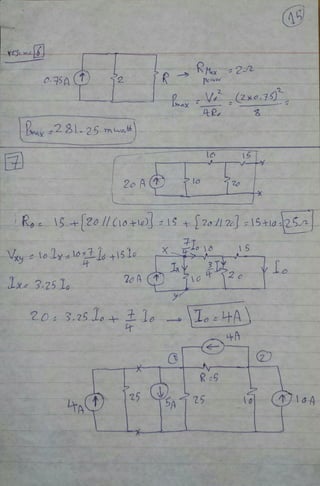 15
6
0.75A
2
R
→ R Max power = 2Ω
Pmax = Vo²/4Ro = (2x0.75)²/8 =
Pmax = 281.25 mwatt
7
10 15
20A
10
20
x
x
Ro = 15 + [20 // (10+10)] = 15 + [20 // 20] = 15+10 = 25Ω
Vxy = 10 Ix = 10x 7/4 Io + 15 Io
Ix = 3.25 Io
x 7/4 Io 10 15
20A
Ix
10
3/4 Io
20
Io
y
20 = 3.25 Io + 7/4 Io → Io = 4A
4A
① R=5 ②
4A
25
5A
25
10
10A
x
x